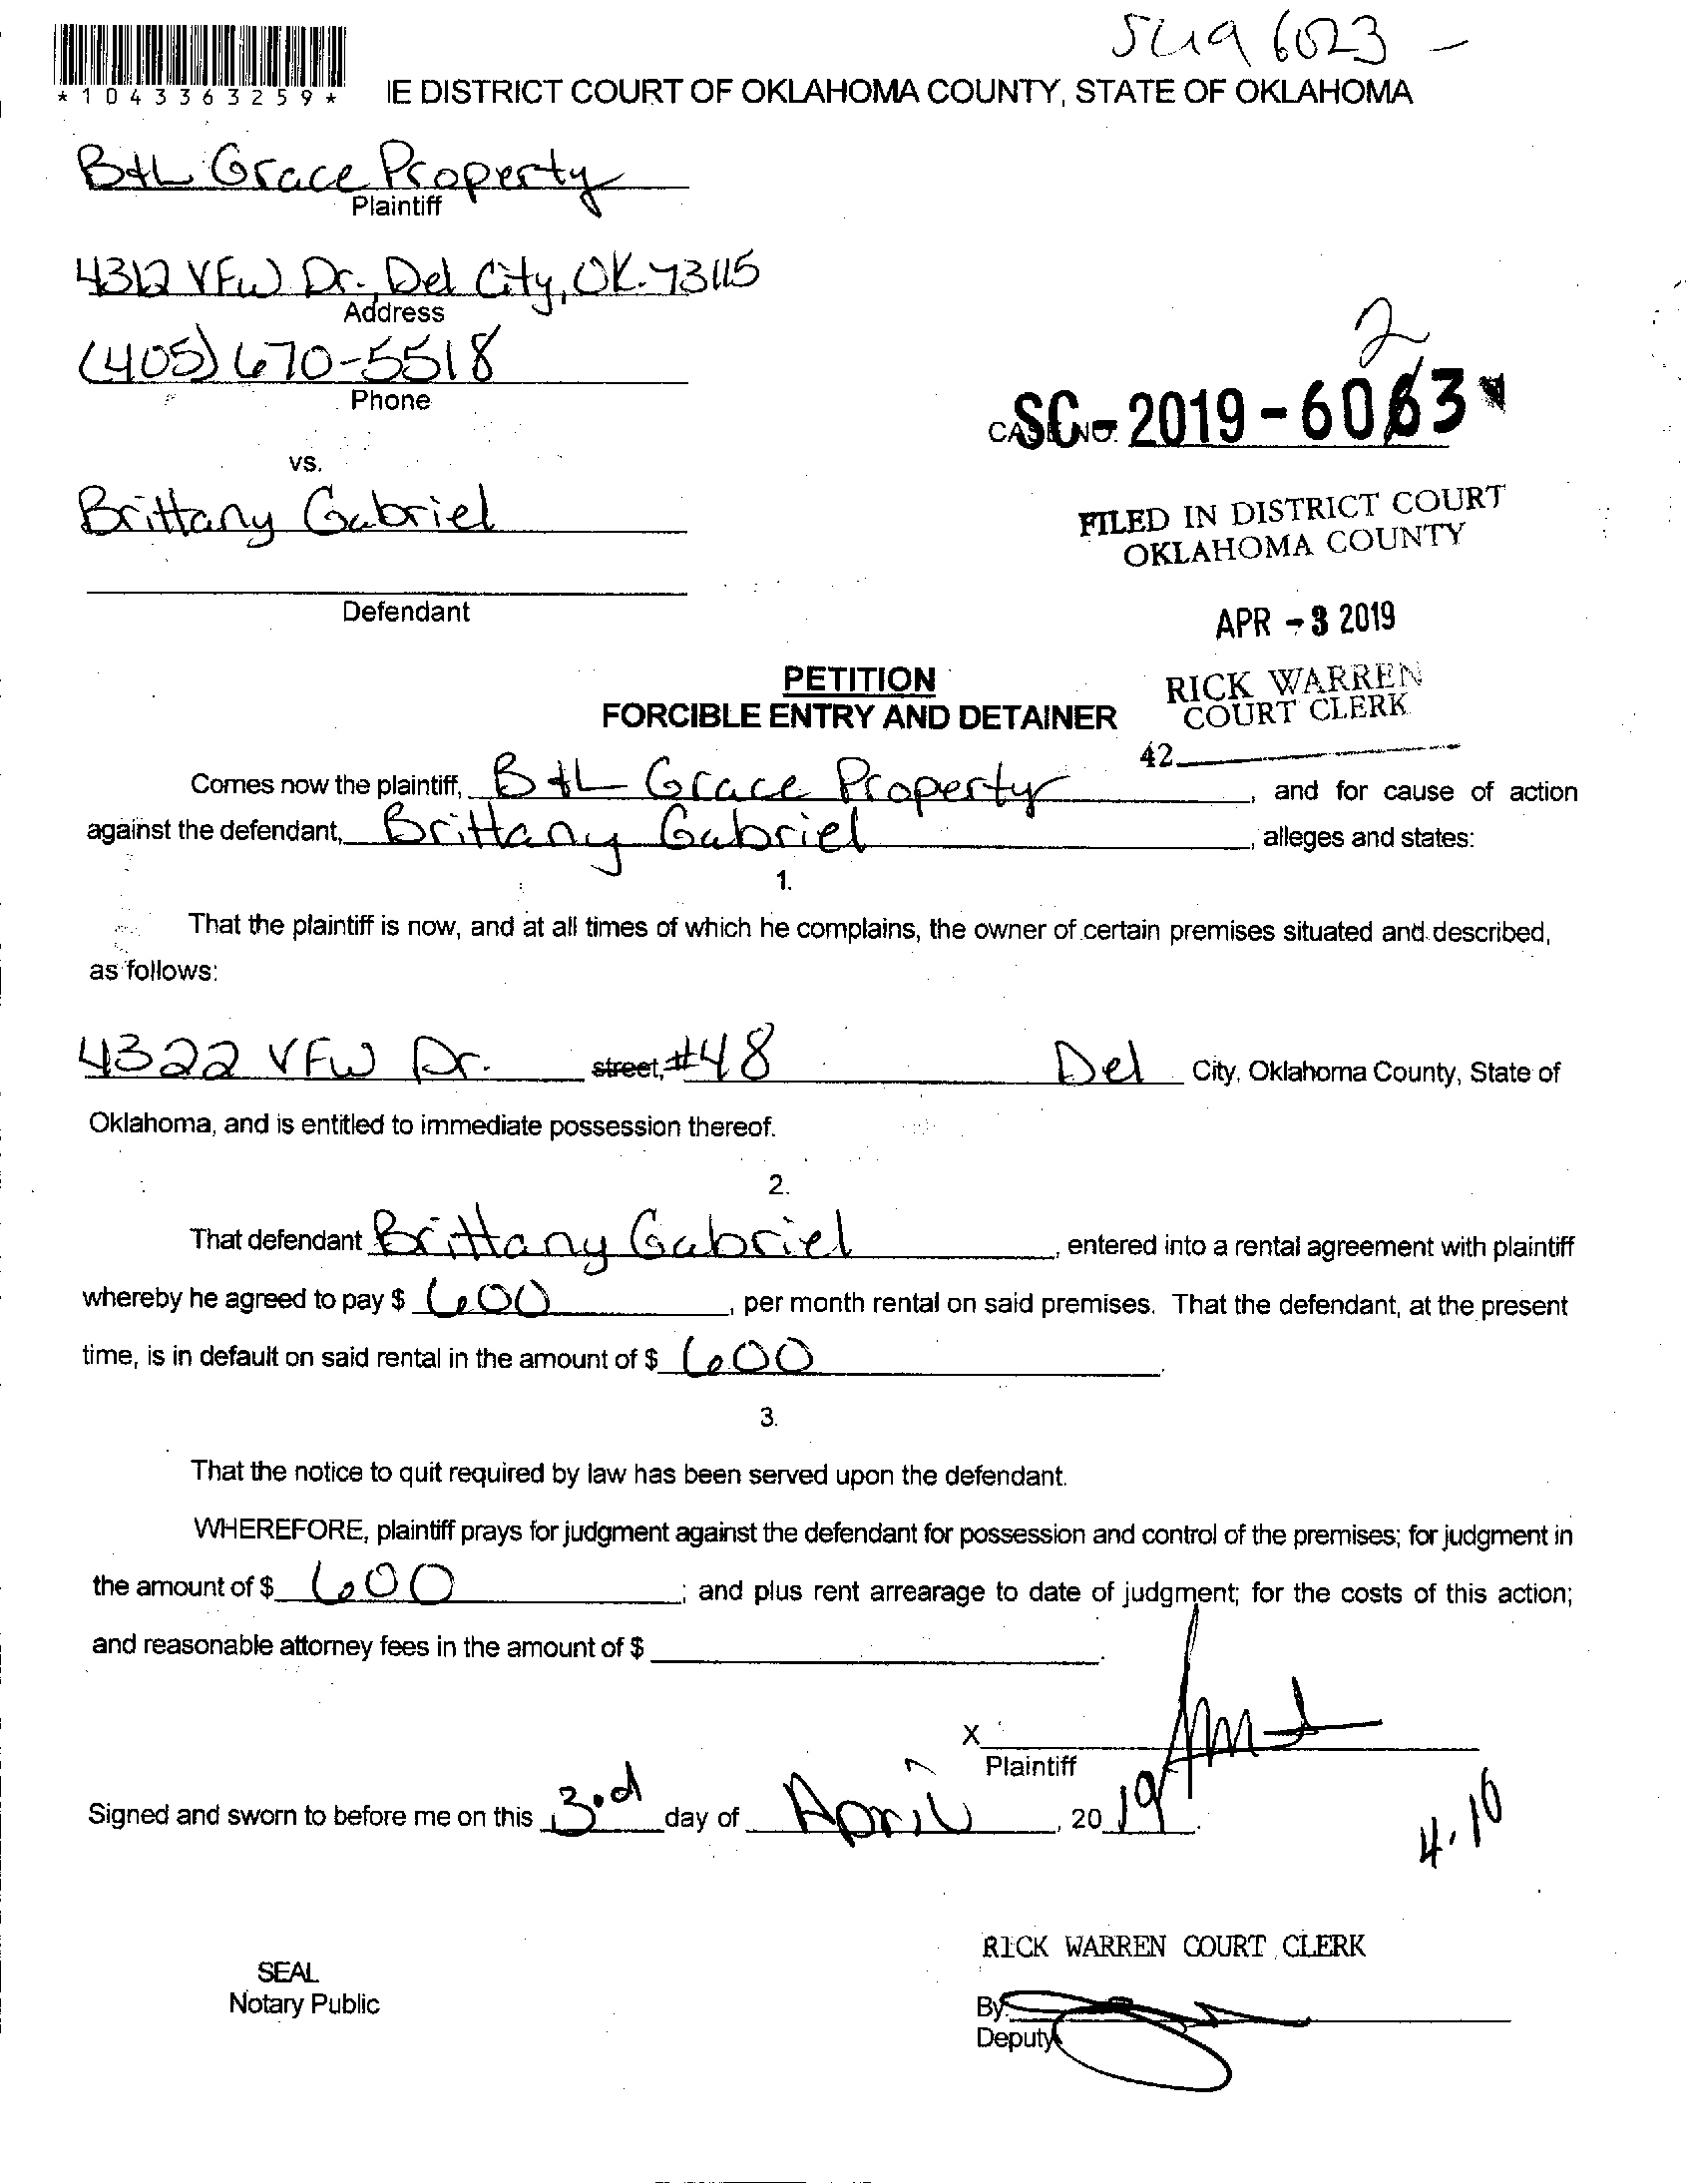 SC19 6023 -
*1043363259*
IE DISTRICT COURT OF OKLAHOMA COUNTY, STATE OF OKLAHOMA
B+L Grace Property
Plaintiff
4312 VFW Dr. Del City, OK. 73115
Address
(405) 670-5518
Phone
2
CASE NO. SC-2019-6063
vs.
Brittany Gabriel
Defendant
FILED IN DISTRICT COURT
OKLAHOMA COUNTY
APR -3 2019
RICK WARREN
COURT CLERK
42
PETITION
FORCIBLE ENTRY AND DETAINER
Comes now the plaintiff, B+L Grace Property, and for cause of action
against the defendant, Brittany Gabriel, alleges and states:
1.
That the plaintiff is now, and at all times of which he complains, the owner of certain premises situated and described,
as follows:
4322 VFW Dr. street, #48 Del City, Oklahoma County, State of
Oklahoma, and is entitled to immediate possession thereof.
2.
That defendant Brittany Gabriel, entered into a rental agreement with plaintiff
whereby he agreed to pay $ 600, per month rental on said premises. That the defendant, at the present
time, is in default on said rental in the amount of $ 600.
3.
That the notice to quit required by law has been served upon the defendant.
WHEREFORE, plaintiff prays for judgment against the defendant for possession and control of the premises; for judgment in
the amount of $ 600; and plus rent arrearage to date of judgment; for the costs of this action;
and reasonable attorney fees in the amount of $ .
X
Plaintiff
Signed and sworn to before me on this 3rd day of April, 20 19.
4.16
RICK WARREN COURT CLERK
SEAL
Notary Public
By:
Deputy